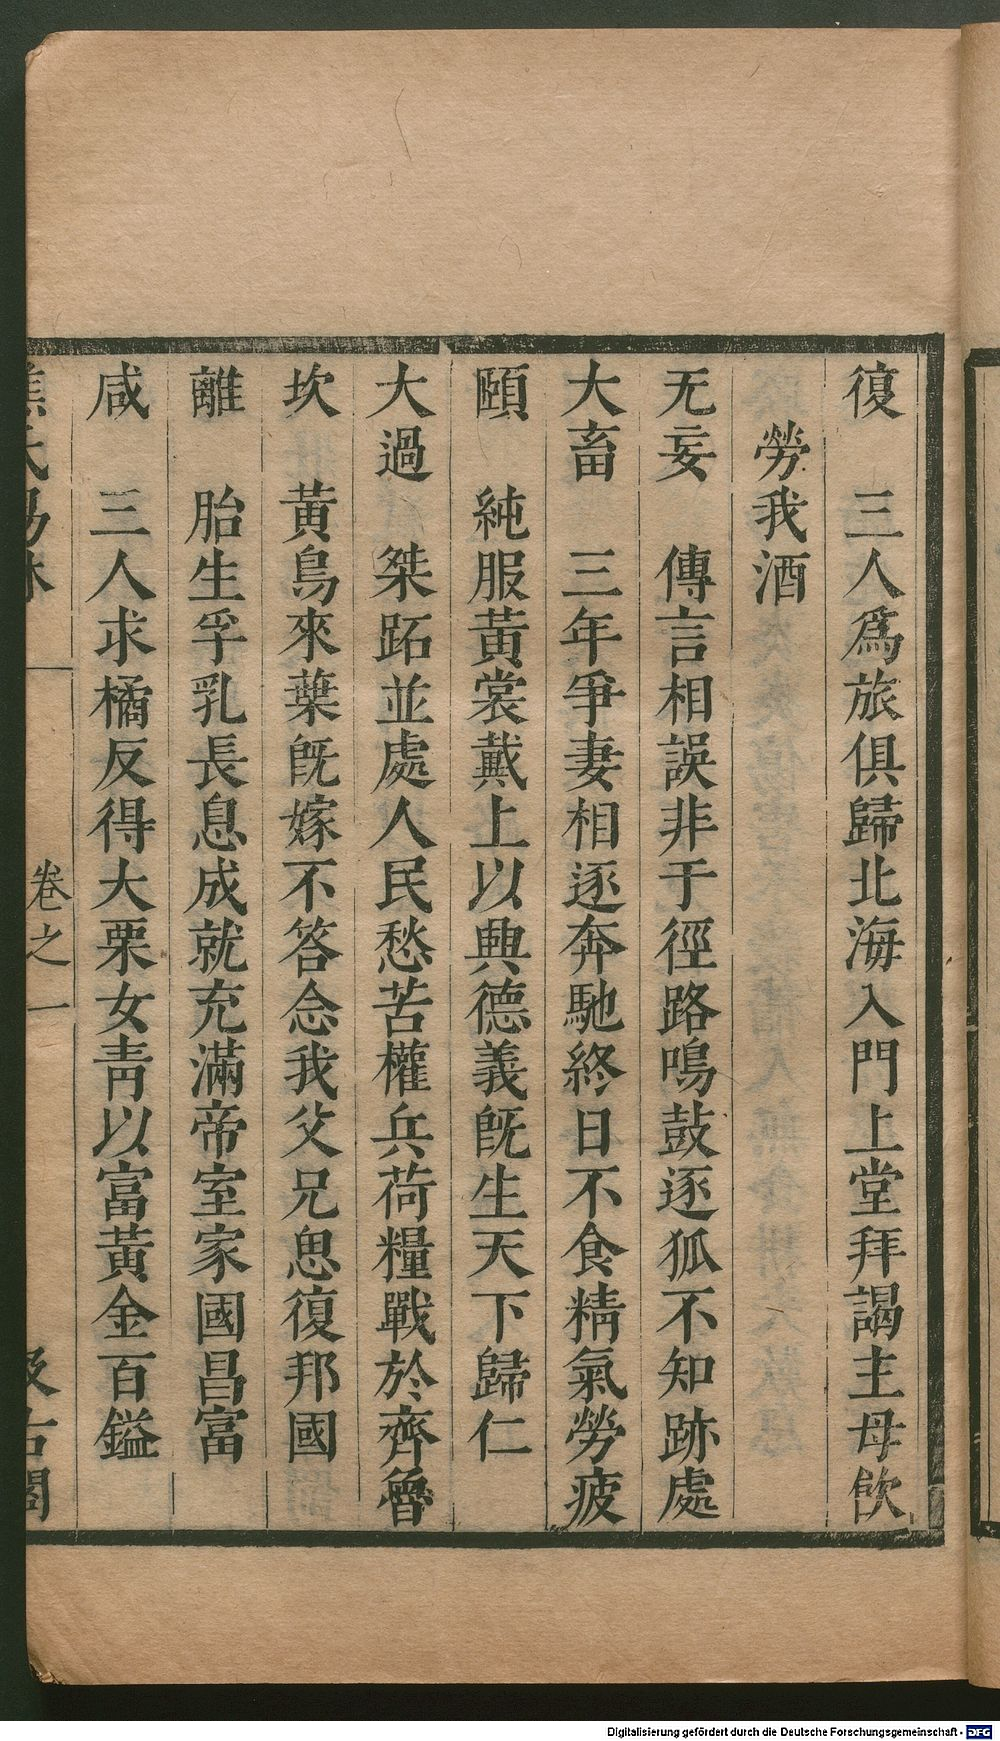 復　三人爲旅俱歸北海入門上堂拜謁主母飲
勞我酒
无妄　傳言相誤非于徑路鳴鼓逐狐不知跡處
大畜　三年爭妻相逐奔馳終日不食精氣勞疲
頤　純服黃裳戴上以興德義旣生天下歸仁
大過　桀跖並處人民愁苦權兵荷糧戰於齊魯
坎　黃鳥來葉旣嫁不答念我父兄思復邦國
離　胎生孚乳長息成就充滿帝室家國昌富
咸　三人求橘反得大栗女靑以富黃金百鎰
焦氏易林　卷之一　汲古閣
Digitalisierung gefördert durch die Deutsche Forschungsgemeinschaft - DFG